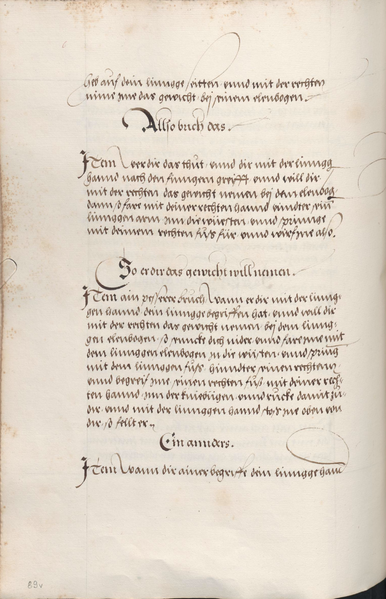 heb auf dein linngge seitten vnnd mit der rechten
nime jme das gewicht bej seinem elenbogen.
Allso brich das.
Item Wer dir das thut vnnd dir mit der linngg
hannd nach den finngern greifft vnnd will dir
mit der rechten das gewicht nemen bej dem elenbog
dann so far mit deiner rechten hannd vnndter sein
linnggen arm jnn die wüesten vnnd sprinnge
mit deinem rechten fuß für vnnd würf jne also.
So er dir das gewicht will nemen.
Item ain pessere bruch Wann er dir mit der linng-
gen hannd dein linngge begriffen hat vnnd will dir
mit der rechten das gewicht nemen bej dem linng-
gen elenbogen so zuck dich nider vnnd far jme mit
dem linnggen elenbogen in die wiesten vnnd spring
mit dem linnggen fuß hinnder seinen rechten
vnnd begreif jme seinen rechten fuß mit deiner rech-
ten hannd jnn der kniebiegen vnnd rucke damit zu
dir vnnd mit der linnggen hannd stoß jne oben von
dir so fellt er
Ein annders.
Item Wann dir ainer begreifft dein linngge hannd
89v